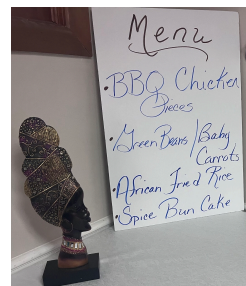 Menu
• BBQ Chicken
Pieces
• Green Beans / Baby
Carrots
• African Fried Rice
• Spice Bun Cake